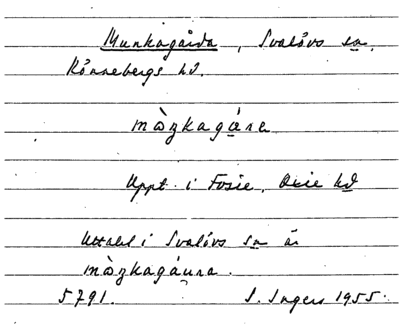 Munkagårda, Svalövs sn,
Rönnebergs hd.
màŋkagá̱ra
Uppt. i Fosie, Oxie hd
Uttalet i Svalövs sn är
màŋkagáu̯na.
5791. I. Ingers 1955.